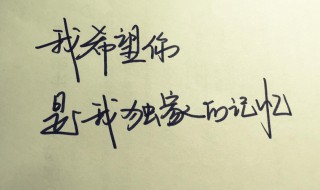 我希望你
是我独家的记忆